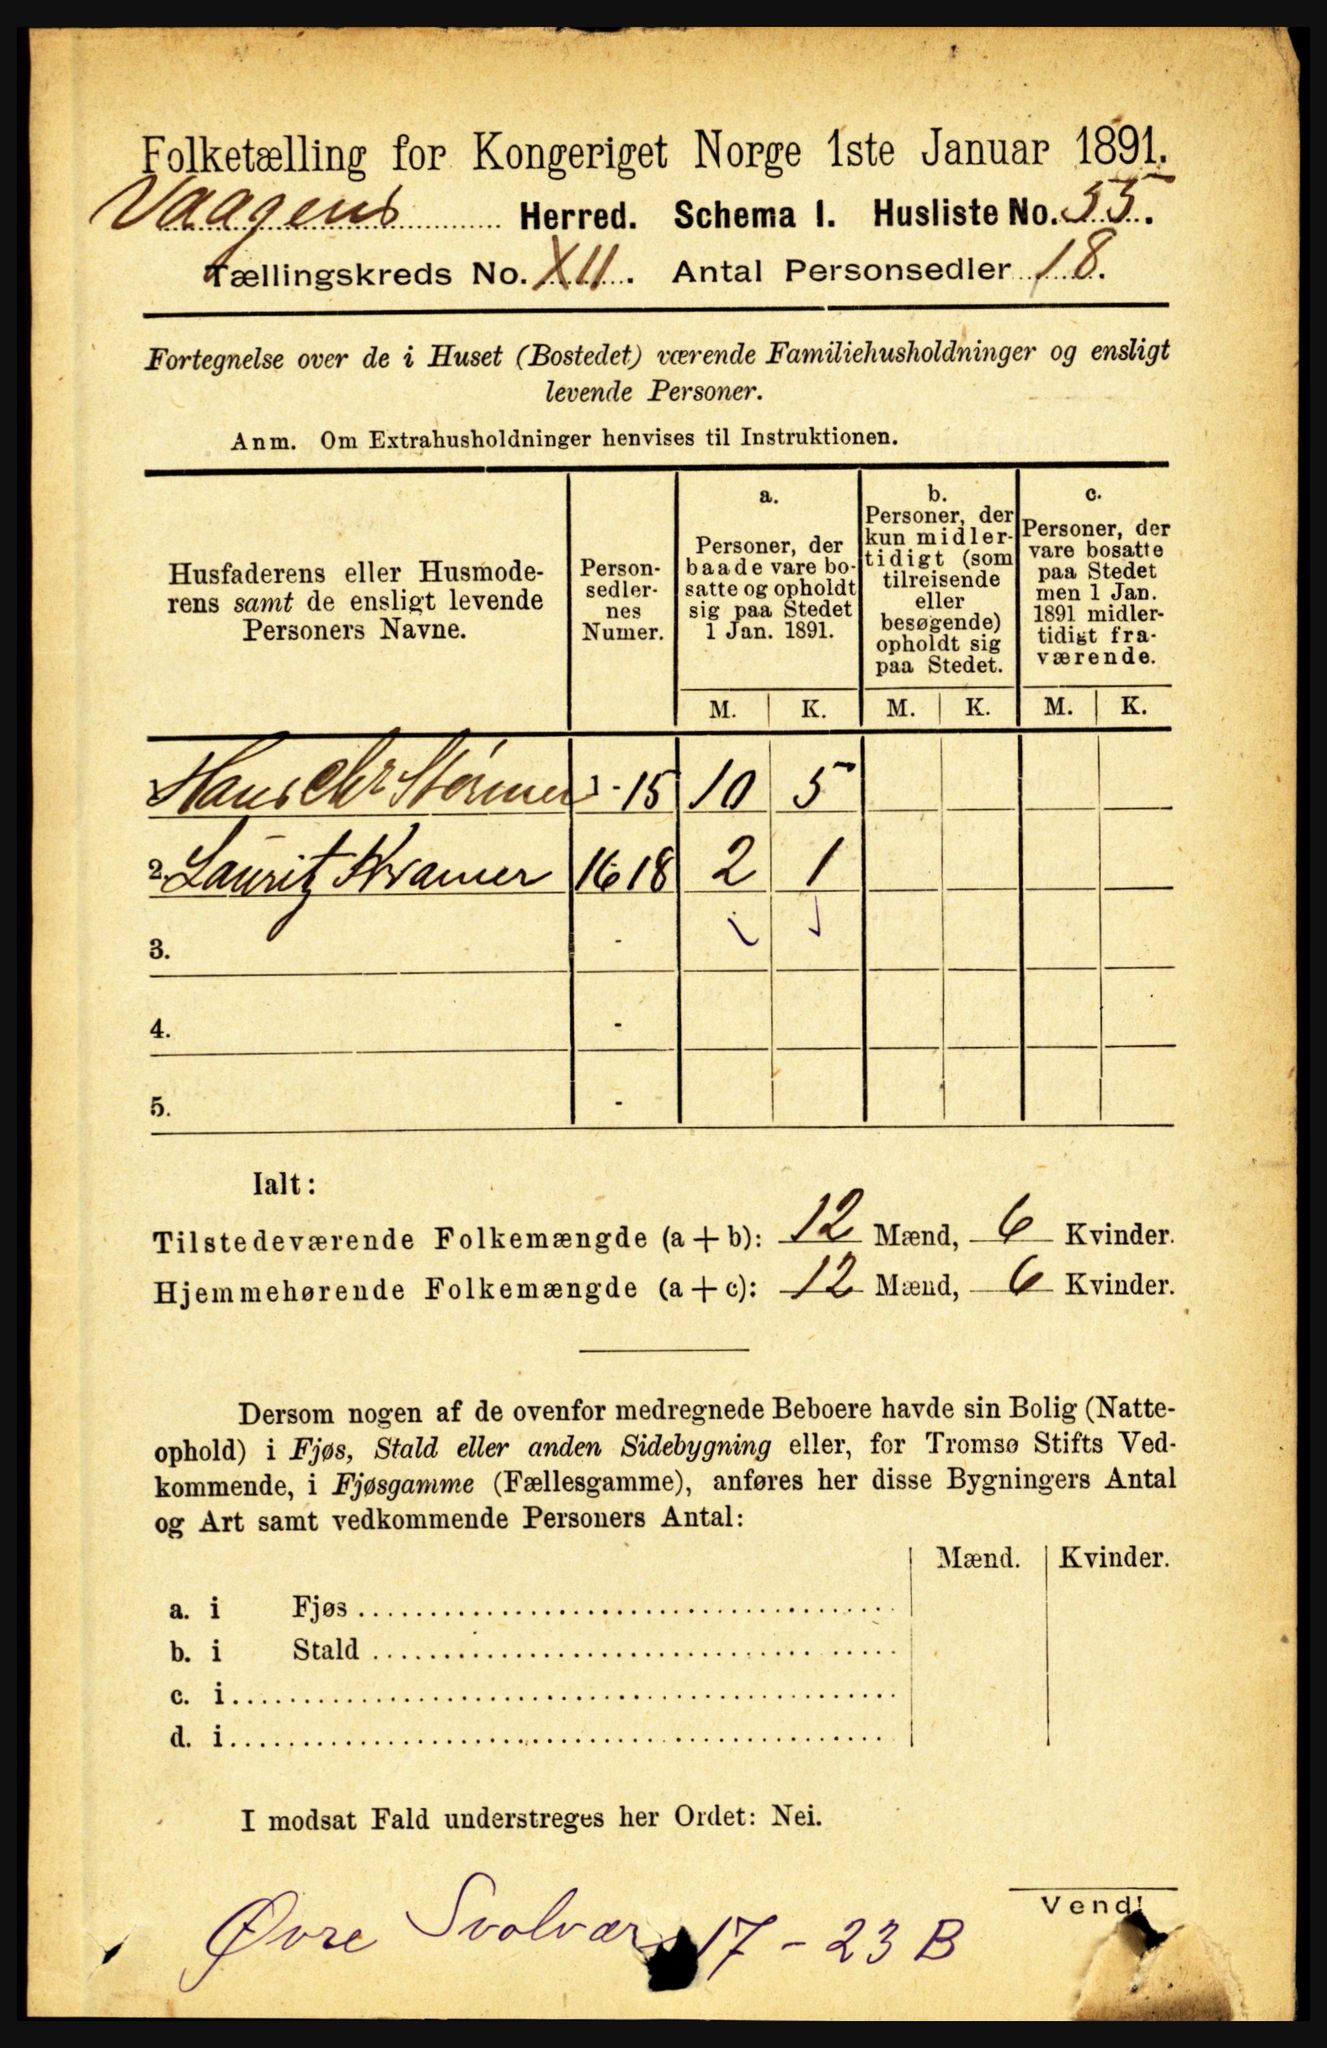 Folketælling for Kongeriget Norge 1ste Januar 1891.
Vaagens Herred. Schema I. Husliste No. 55.
Tællingskreds No. XII. Antal Personsedler 18.
Fortegnelse over de i Huset (Bostedet) værende Familiehusholdninger og ensligt
levende Personer.
Anm. Om Extrahusholdninger henvises til Instruktionen.
Husfaderens eller Husmode-
rens samt de ensligt levende
Personers Navne.
Person-
sedler-
nes
Numer.
a.
Personer, der
baade vare bo-
satte og opholdt
sig paa Stedet
1 Jan. 1891.
b.
Personer, der
kun midler-
tidigt (som
tilreisende
eller
besøgende)
opholdt sig
paa Stedet.
c.
Personer, der
vare bosatte
paa Stedet
men 1 Jan.
1891 midler-
tidigt fra-
værende.
M. K. M. K. M. K.
Hans Chr Størmer 1-15 10 5
2. Lauritz Kramer 16-18 2 1
3. -
4. -
5. -
Ialt:
Tilstedeværende Folkemængde (a + b): 12 Mænd, 6 Kvinder.
Hjemmehørende Folkemængde (a + c): 12 Mænd, 6 Kvinder.
Dersom nogen af de ovenfor medregnede Beboere havde sin Bolig (Natte-
ophold) i Fjøs, Stald eller anden Sidebygning eller, for Tromsø Stifts Ved-
kommende, i Fjøsgamme (Fællesgamme), anføres her disse Bygningers Antal
og Art samt vedkommende Personers Antal:
Mænd. Kvinder.
a. i Fjøs
b. i Stald
c. i
d. i
I modsat Fald understreges her Ordet: Nei.
Vend!
Øvre Svolvær 17 - 23 B